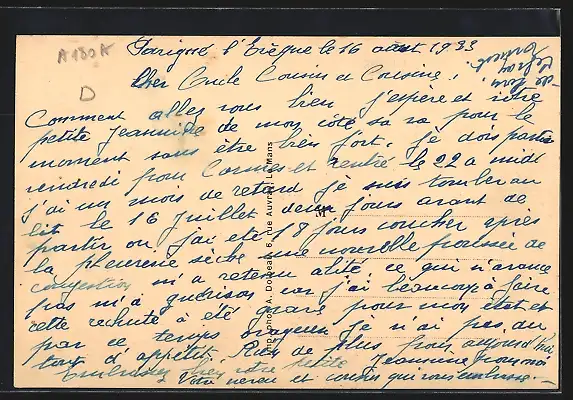 A180A
D
Parigné l'Évêque le 16 août 1933
Cher Oncle Cousin et Cousine,
Comment allez vous bien j'espère et votre
petite Jeannine de mon côté sa va pour le
moment sans être bien fort. Je dois partir
vendredi pour et rentré le 22 a midi
j'ai un mois de retard je suis tombé au
lit le 16 Juillet deux jours avant de
partir ou j'ai été 18 jours coucher après
la pleurerie sèche une nouvelle poussée de
congestion m'a retenu alité, ce qui n'avance
pas m'a guérison car j'ai beaucoup à faire
cette rechute à été grave pour mon état et
par ce temps orageux je n'ai pas du
tout d'appétit. Rien de plus pour aujourd'hui
Embrassez bien votre petite Jeannine pour moi
Votre neveu et cousin qui vous embrasse.
Imp.-phot. A. Dolbeau, 6, rue Auvray, Le Mans